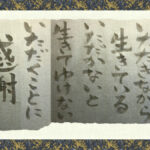 いただきながら
生きている
いただかないと
生きてゆけない
いただくことに
感謝